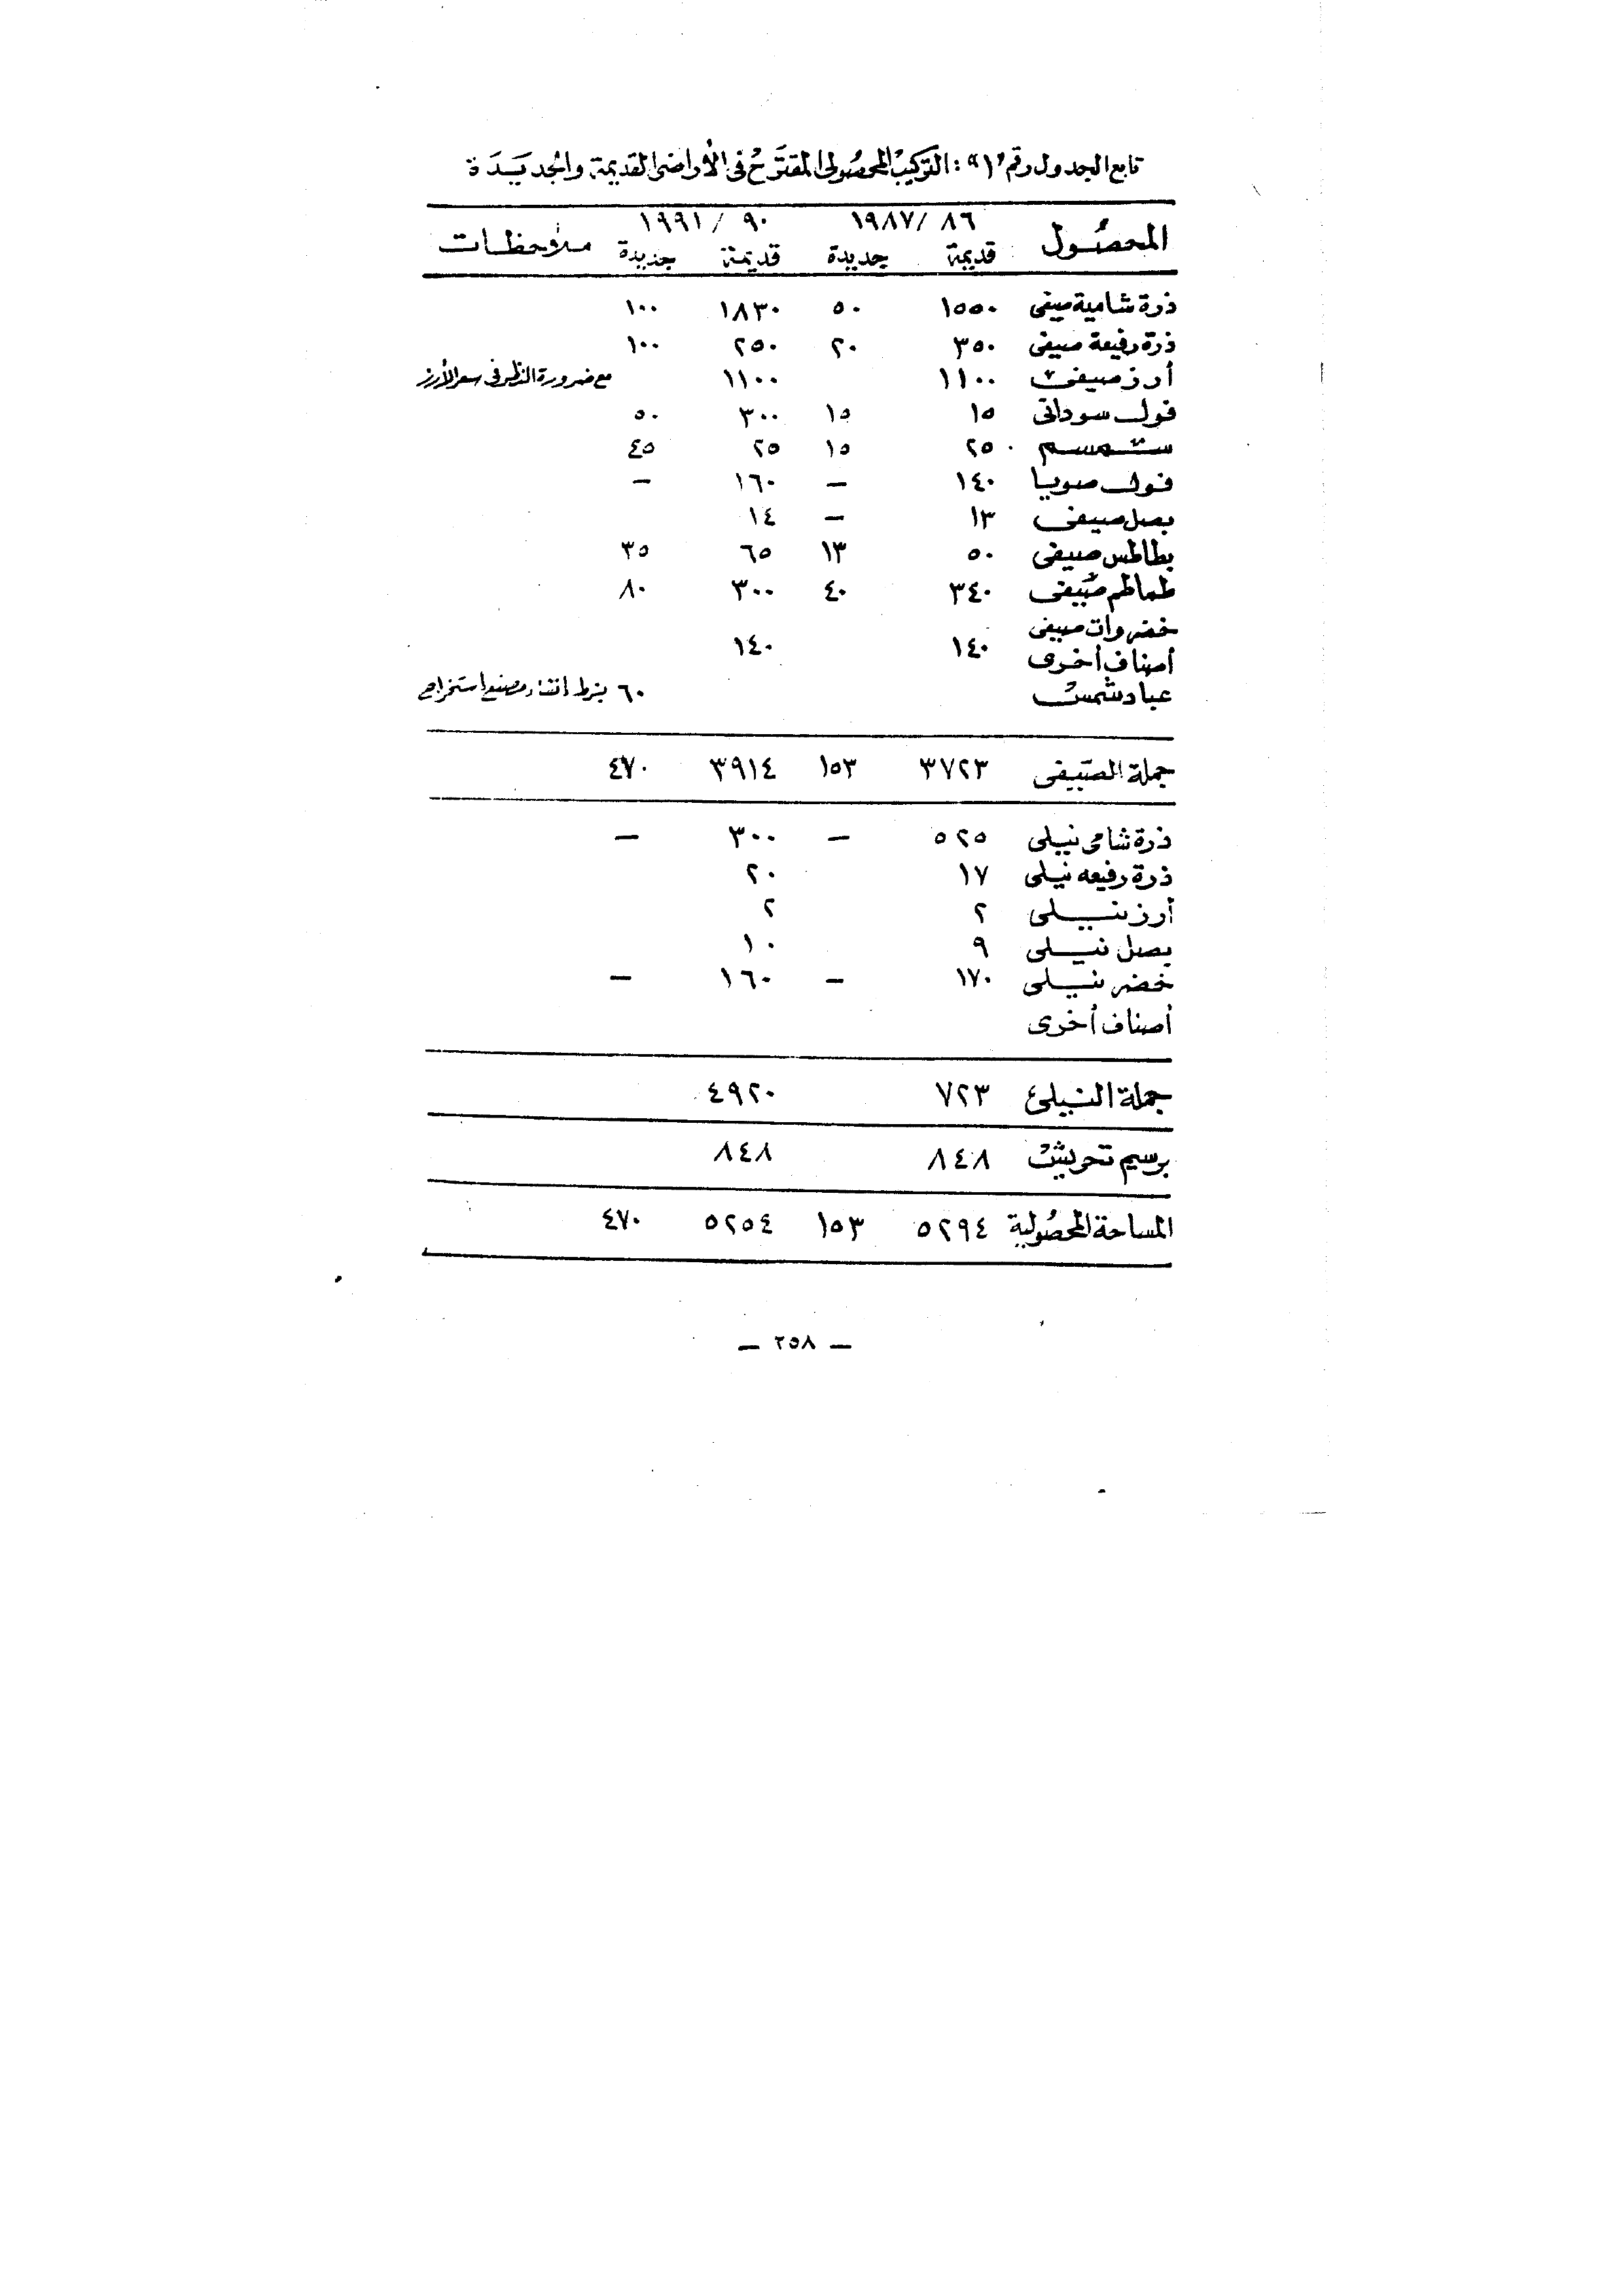 تابع الجدول رقم "١" : التركيب المحصولى المقترح فى الأراضى القديمة والجديدة
المحصول ٨٦ /١٩٨٧ ٩٠ / ١٩٩١ ملاحظات
قديمة جديدة قديمة جديدة
ذرة شامية صيفى ١٥٥٠ ٥٠ ١٨٣٠ ١٠٠
ذرة رفيعة صيفى ٣٥٠ ٢٠ ٢٥٠ ١٠٠
أرز صيفى ١١٠٠ ١١٠٠ مع ضرورة النظر فى سعر الأرز
فول سودانى ١٥ ١٥ ٣٠٠ ٥٠
سمسم ٢٥ ١٥ ٢٥ ٤٥
فول صويا ١٤٠ — ١٦٠ —
بصل صيفى ١٣ — ١٤
بطاطس صيفى ٥٠ ١٣ ٦٥ ٣٥
طماطم صيفى ٣٤٠ ٤٠ ٣٠٠ ٨٠
خضروات صيفى
أصناف أخرى ١٤٠ ١٤٠
عباد شمس ٦٠ بشرط انشاء مصنع استخراج
جملة الصيفى ٣٧٢٣ ١٥٣ ٣٩١٤ ٤٧٠
ذرة شامى نيلى ٥٢٥ — ٣٠٠ —
ذرة رفيعه نيلى ١٧ ٢٠
أرز نيلى ٢ ٢
بصل نيلى ٩ ١٠
خضر نيلى ١٧٠ — ١٦٠ —
أصناف أخرى
جملة النيلى ٧٢٣ ٤٩٢٠
برسيم تحريش ٨٤٨ ٨٤٨
المساحة المحصولية ٥٢٩٤ ١٥٣ ٥٢٥٤ ٤٧٠
— ٢٥٨ —